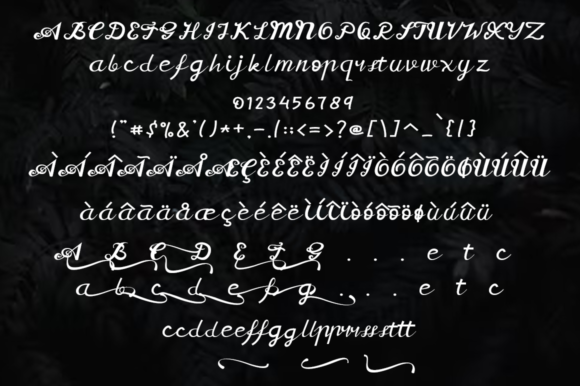 ABCDEFGHIJKLMNOPQRSTUVWXYZ
abcdefghijklmnopqrstuvwxyz
0123456789
!"#$%&'()*+,-./:;<=>?@[\]^_`{|}
ÀÁÂÃÄÅÆÇÈÉÊËÌÍÎÏÒÓÔÕÖØÙÚÛÜ
àáâãäåæçèéêëìíîïòóôõöøùúûü
A B C D E F G . . . e t c
a b c d e f g . . . e t c
ccddeeffggllpprrsssttt